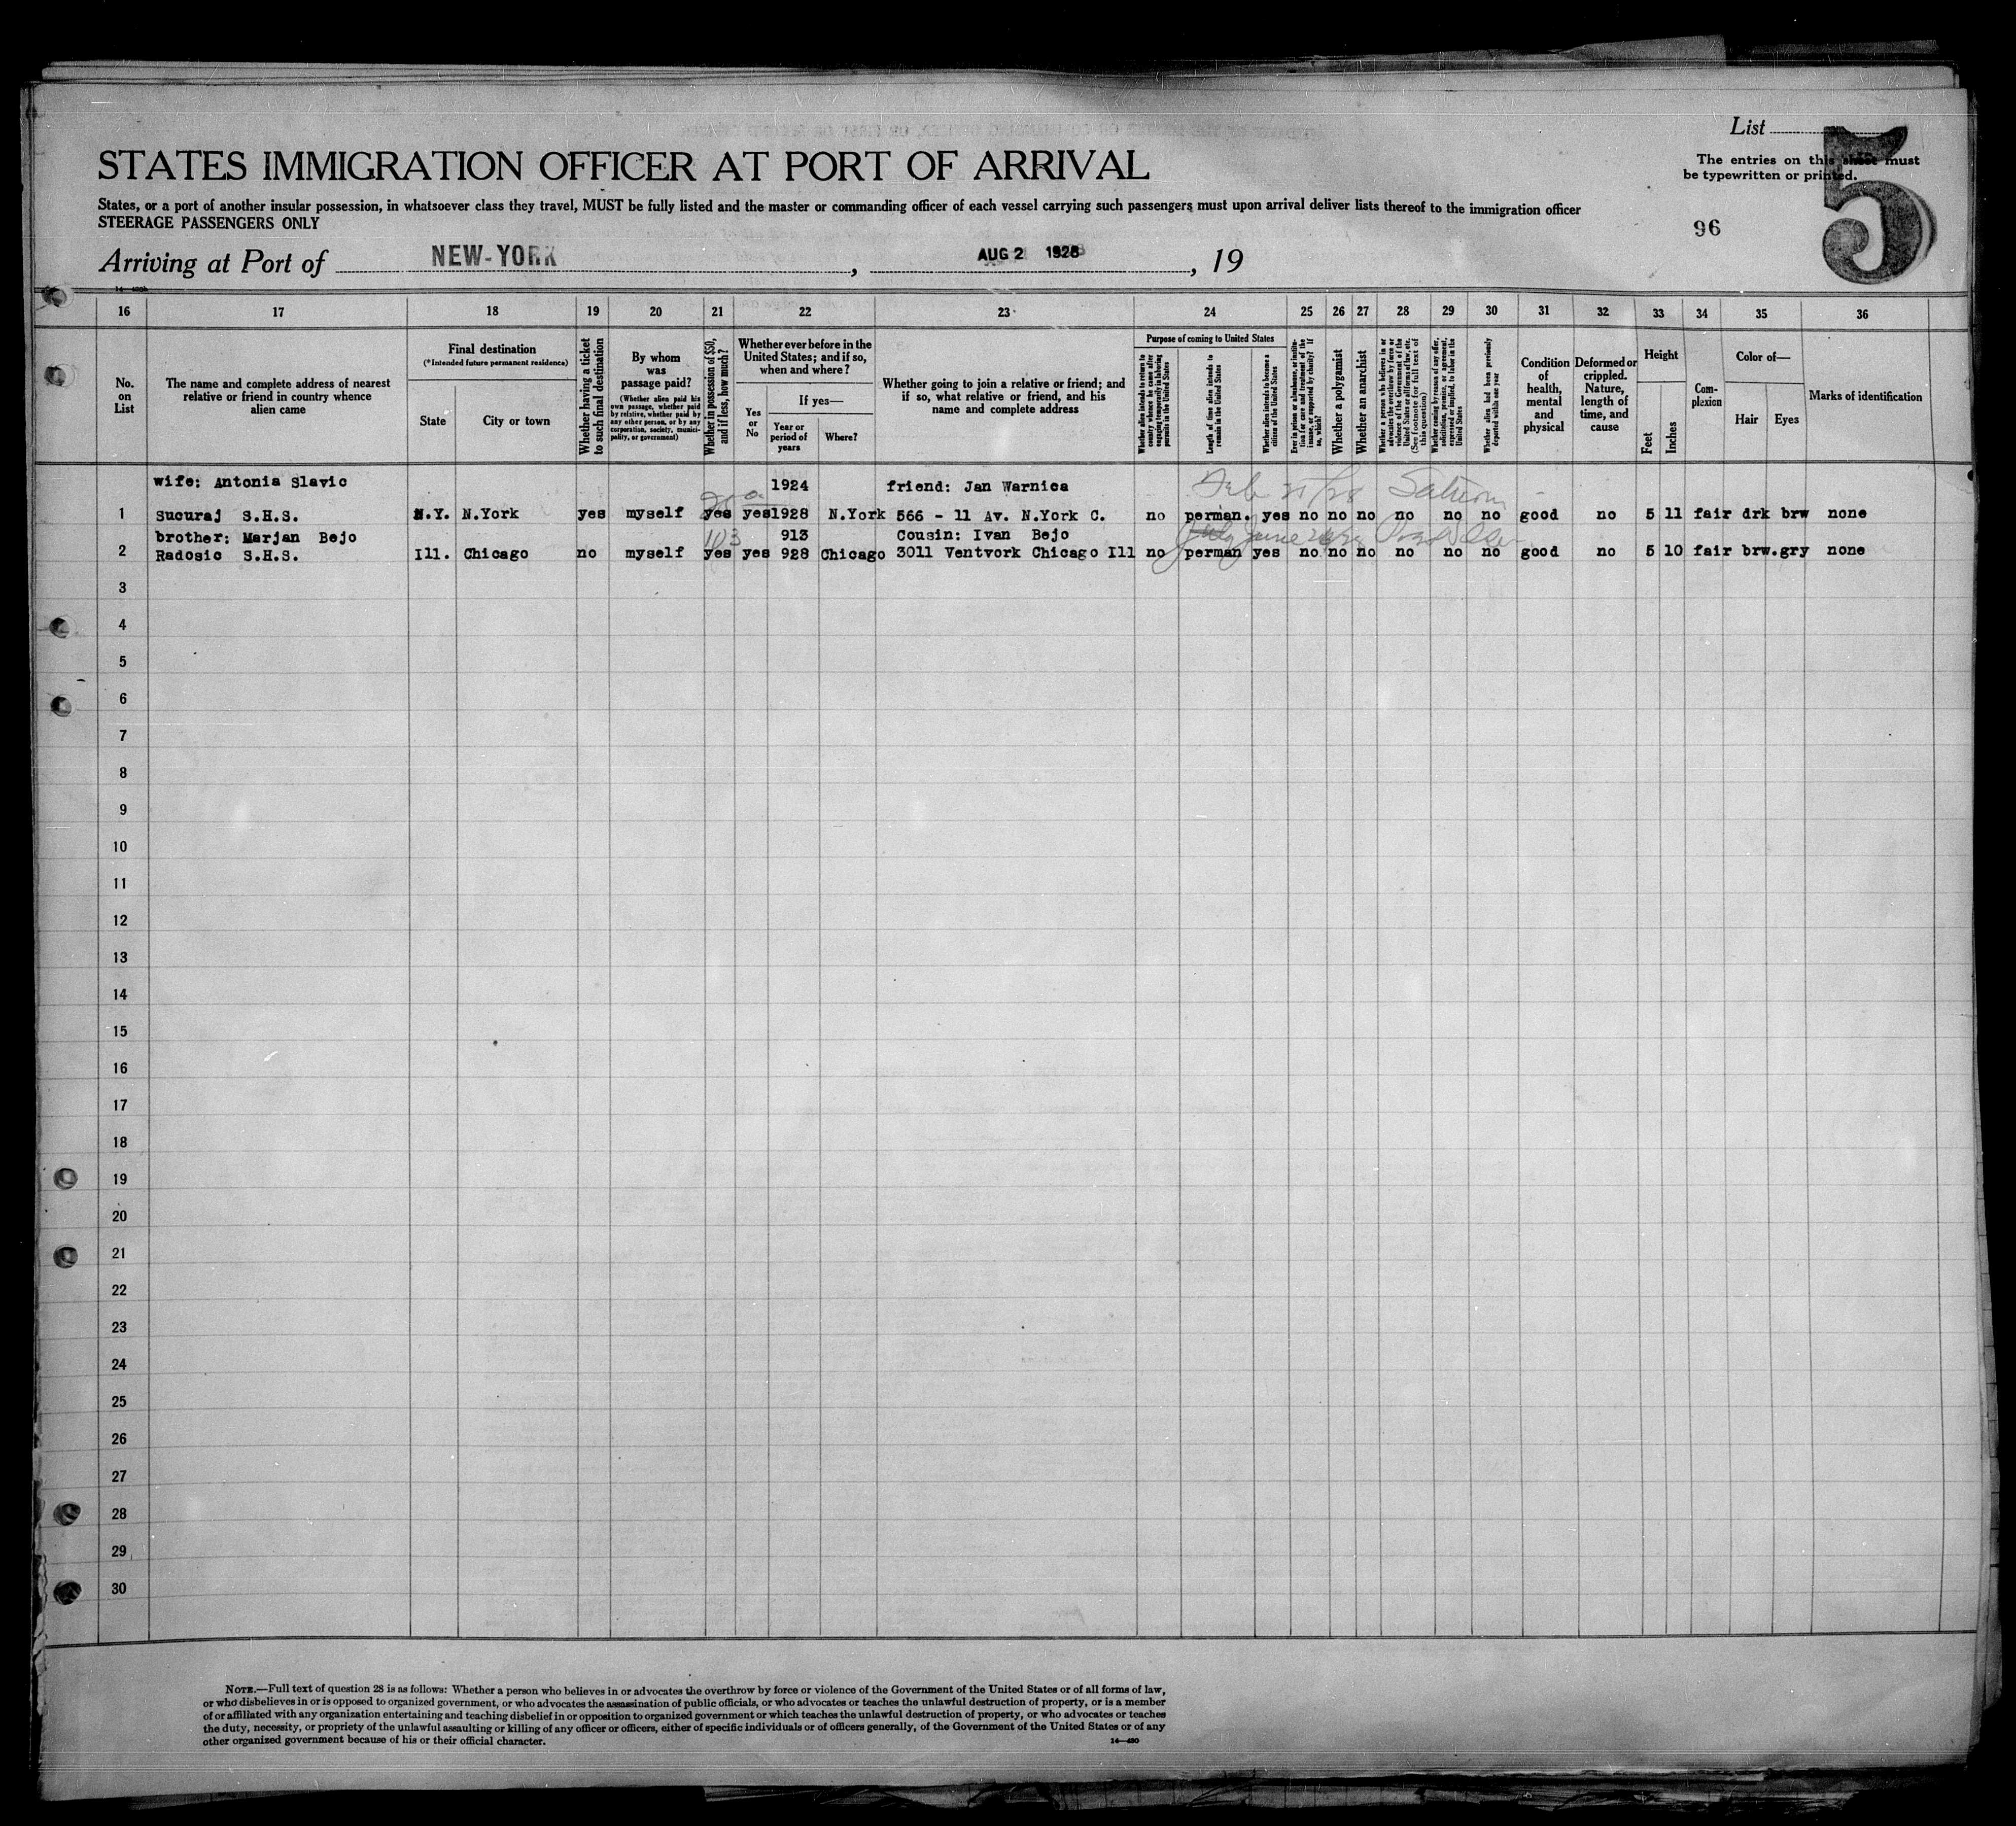 List
STATES IMMIGRATION OFFICER AT PORT OF ARRIVAL
The entries on this sheet must
be typewritten or printed.
5
States, or a port of another insular possession, in whatsoever class they travel, MUST be fully listed and the master or commanding officer of each vessel carrying such passengers must upon arrival deliver lists thereof to the immigration officer
STEERAGE PASSENGERS ONLY
96
Arriving at Port of NEW-YORK, AUG 2 1928, 19
16 17 18 19 20 21 22 23 24 25 26 27 28 29 30 31 32 33 34 35 36
No.
on
List
The name and complete address of nearest
relative or friend in country whence
alien came
Final destination
(*Intended future permanent residence)
State
City or town
Whether having a ticket
to such final destination
By whom
was
passage paid?
(Whether alien paid his
own passage, whether paid
by relative, whether paid by
any other person, or by any
corporation, society, munici-
pality, or government)
Whether in possession of $50,
and if less, how much?
Whether ever before in the
United States; and if so,
when and where?
Yes
or
No
If yes—
Year or
period of
years
Where?
Whether going to join a relative or friend; and
if so, what relative or friend, and his
name and complete address
Purpose of coming to United States
Whether alien intends to return to
country whence he came after
engaging temporarily in laboring
pursuits in the United States
Length of time alien intends to
remain in the United States
Whether alien intends to become a
citizen of the United States
Ever in prison or almshouse, or institu-
tion for care and treatment of the
insane, or supported by charity? If
so, which?
Whether a polygamist
Whether an anarchist
Whether a person who believes in or
advocates the overthrow by force or
violence of the Government of the
United States or all forms of law, etc.
(See footnote for full text of
this question)
Whether coming by reason of any offer,
solicitation, promise, or agreement,
expressed or implied, to labor in the
United States
Whether alien had been previously
deported within one year
Condition
of
health,
mental
and
physical
Deformed or
crippled.
Nature,
length of
time, and
cause
Height
Feet
Inches
Com-
plexion
Color of—
Hair
Eyes
Marks of identification
wife: Antonia Slavic 1924 friend: Jan Warnica
1 Sucuraj S.H.S. N.Y. N.York yes myself yes yes 1928 N.York 566 - 11 Av. N.York C. no perman. yes no no no no no no good no 5 11 fair drk brw none
brother: Marjan Bejo 103 913 Cousin: Ivan Bejo
2 Radosic S.H.S. Ill. Chicago no myself yes yes 928 Chicago 3011 Ventvork Chicago Ill no perman yes no no no no no no good no 5 10 fair brw. gry none
3
4
5
6
7
8
9
10
11
12
13
14
15
16
17
18
19
20
21
22
23
24
25
26
27
28
29
30
NOTE.—Full text of question 28 is as follows: Whether a person who believes in or advocates the overthrow by force or violence of the Government of the United States or of all forms of law,
or who disbelieves in or is opposed to organized government, or who advocates the assassination of public officials, or who advocates or teaches the unlawful destruction of property, or is a member
of or affiliated with any organization entertaining and teaching disbelief in or opposition to organized government or which teaches the unlawful destruction of property, or who advocates or teaches
the duty, necessity, or propriety of the unlawful assaulting or killing of any officer or officers, either of specific individuals or of officers generally, of the Government of the United States or of any
other organized government because of his or their official character.
14—480